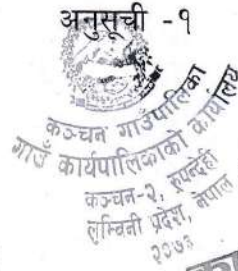 अनुसूची -१
कञ्चन गाउँपालिका
गाउँ कार्यपालिकाको कार्यालय
कञ्चन-२, रुपन्देही
लुम्बिनी प्रदेश, नेपाल
२०७३